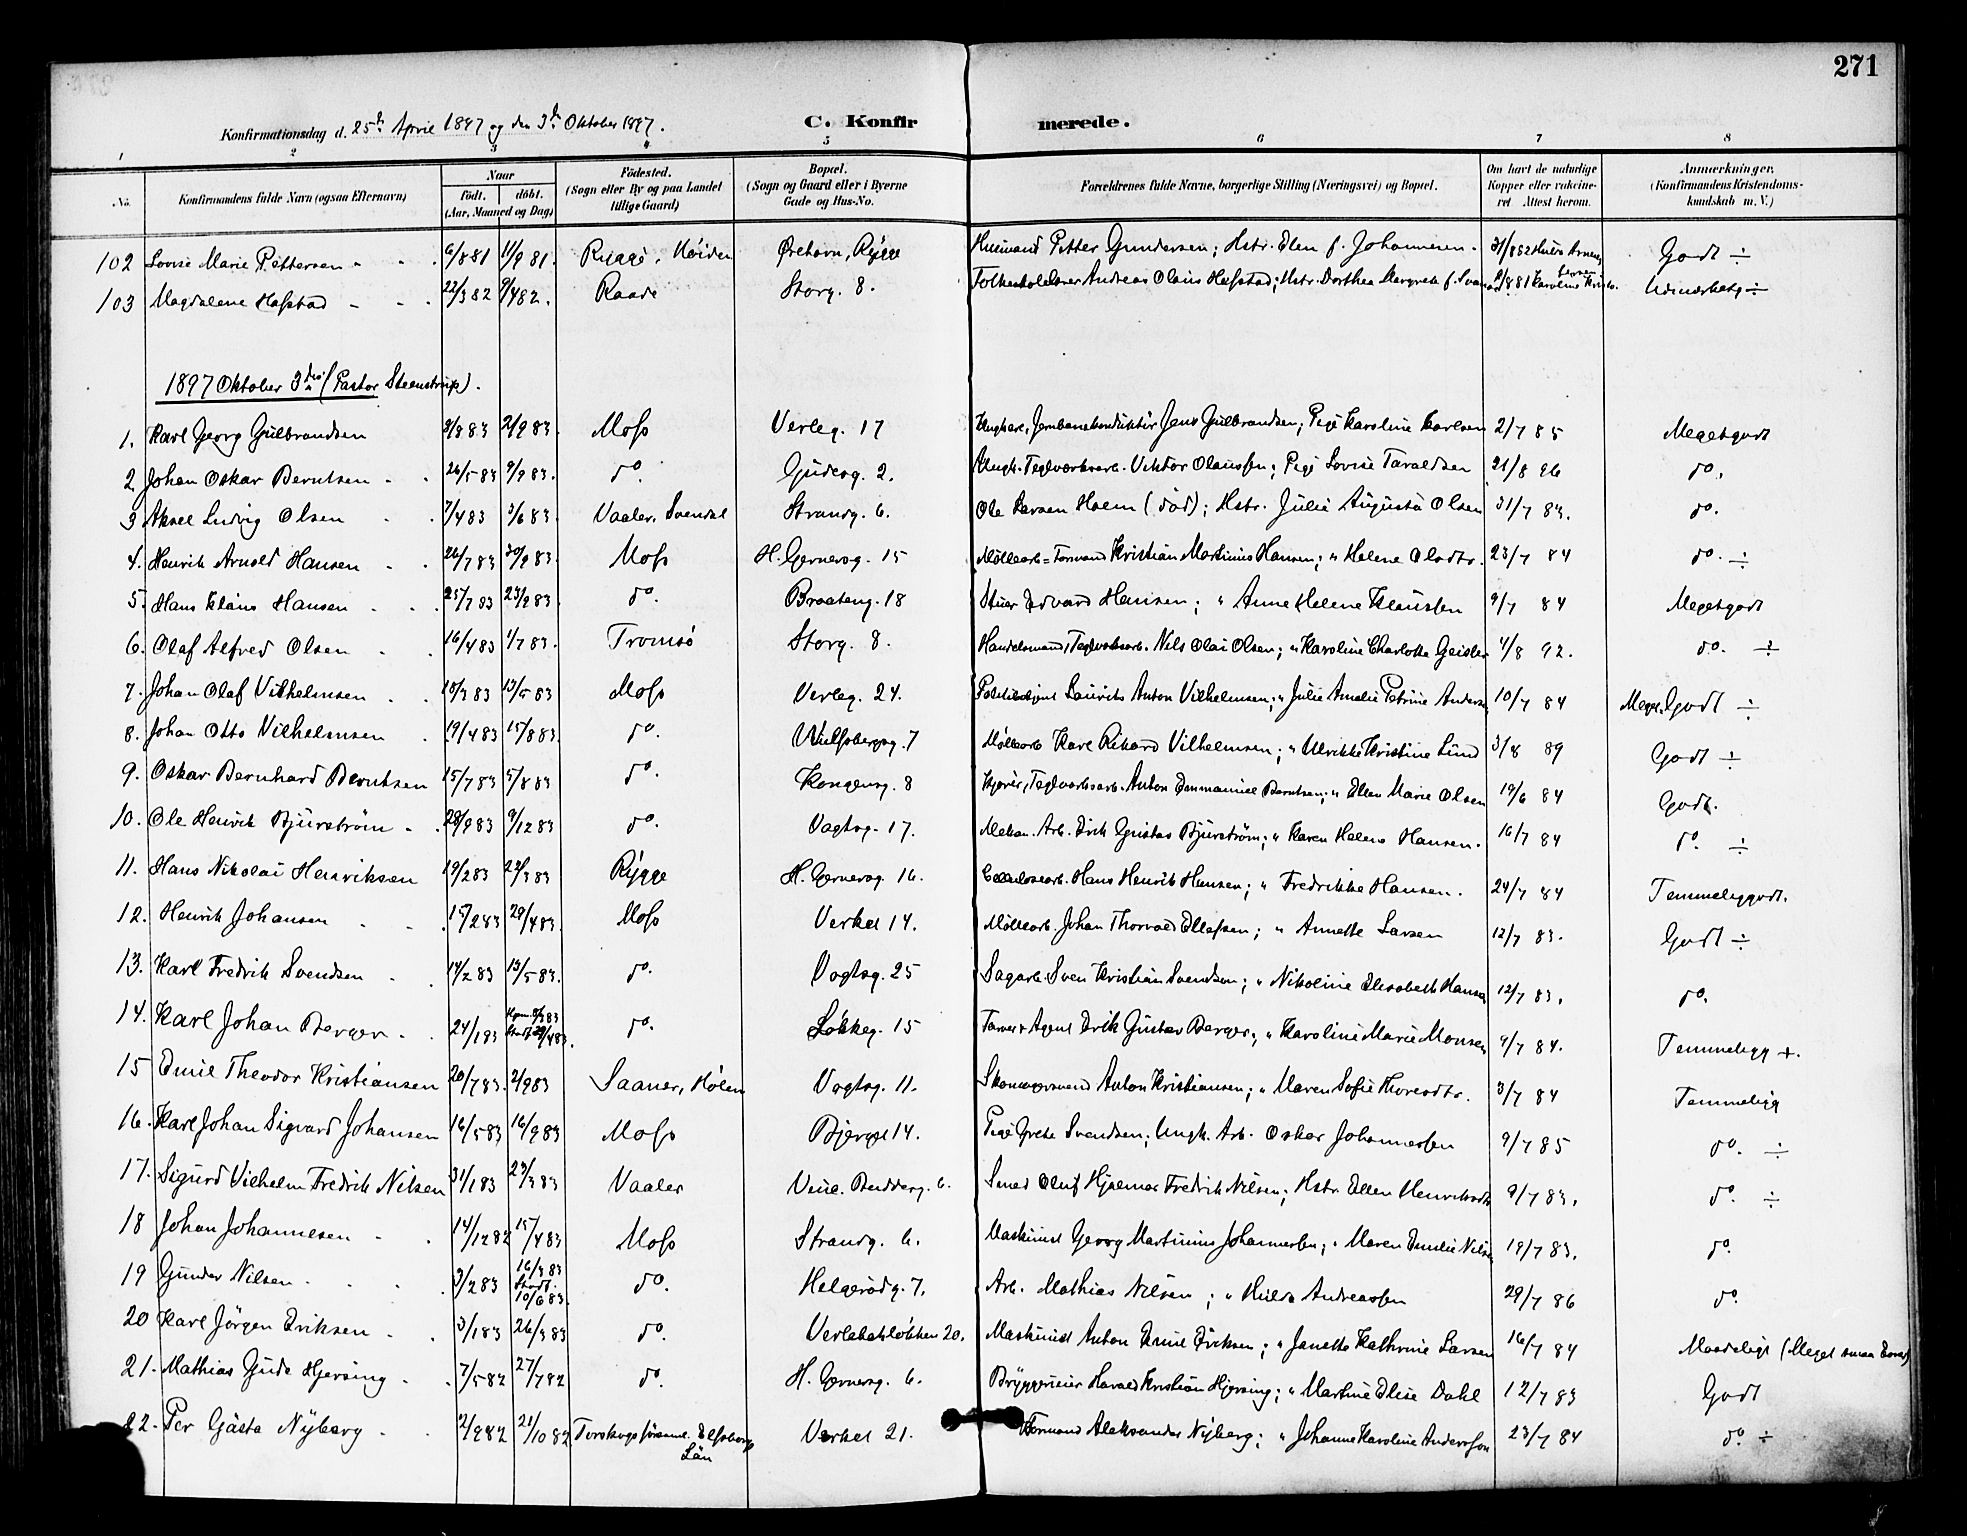 271
Konfirmationsdag d. 25de April 1897 og den 3de Oktober 1897. C. Konfirmerede.
1 2 3 4 5 6 7 8
No. Konfirmandens fulde Navn (ogsaa Efternavn) Naar født. døbt. (Aar, Maaned og Dag) Födested. (Sogn eller By og paa Landet tillige Gaard) Bopæl. (Sogn og Gaard eller i Byerne Gade og Hus-No. Forældrenes fulde Navne, borgerlige Stilling (Næringsvei) og Bopæl. Om havt de naturlige Kopper eller vakcineret. Attest herom. Anmærkninger. (Konfirmandens Kristendomskundskab m. V.)
102 Lovise Marie Pettersen 6/8 81 11/9 81. Rygge, Ørehavn, Rygge Husmand Petter Gundersen; Hstr. Elen f. Johannesen. Godt ÷
103 Magdalene Hafstad 22/3 82 9/4 82. Raade Storg. 8. Folkeskolelærer Andreas Olaus Hafstad; Hstr. Dorthea Margrete f. Udmærketg ÷
1897 Oktober 3die (Pastor Steenstrup).
1. Karl Georg Gulbrandsen 3/8 83 2/9 83. Moss Verleg. 17 Ungkarl, Jernbanekonduktør Jens Gulbrandsen; Pige Karoline Karlsen 2/7 85 Megetgodt
2 Johan Oskar Berntsen 26/5 83 9/9 83. do. Gudesg. 2. Ungk. Teglværksarb. Viktor Olaussen; Pige Lovise Taraldsen 21/8 96 do.
3 Aksel Ludvig Olsen 7/4 83 3/6 83. Vaaler, Svendal Strandg. 6. Ole Larsen Holm (død); Hstr. Julie Augusta Olsen 31/7 83. do.
4. Henrik Arnold Hansen 26/7 83 30/9 83. Moss H. Gernersg. 15 Møllearb.=Formand Kristian Martinius Hansen; " Helene Olsdtr. 23/7 84 do. ÷
5. Hans Klaus Hansen 25/7 83 23/9 83. do. Braateng. 18 Stuer Edvard Hansen; " Anne Helene Klaussen 9/7 84 Megetgodt
6. Olaf Alfred Olsen 16/4 83 1/7 83. Tromsö Storg. 8. Handelsmand, Teglværksarb. Nils Olai Olsen; " Karoline Charlotte Geisler 4/8 92. do. ÷
7. Johan Olaf Vilhelmsen 18/3 83 13/5 83 Moss Verleg. 24. Politibetjent Laurits Anton Vilhelmsen; " Julie Amalie Petrine Anders 10/7 84 Meget Godt ÷
8. Johan Otto Vilhelmsen 19/4 83 15/8 83. do. Wulfsbergsg. 7 Møllearb. Karl Rikard Vilhelmsen; " Ulrikke Kristine Lund 3/8 89 Godt ÷
9. Oskar Bernhard Berntsen 15/7 83 5/8 83 do. Kongensg. 8 Kjører, Teglværksarb. Anton Emmanuel Berntsen; " Ellen Marie Olsen 19/6 84 Godt.
10. Ole Henrik Bjurström 28/9 83 9/12 83 do. Vogtsg. 17. Mekan. Arb. Erik Gustav Bjurström; " Karen Helene Hansen. 16/7 84 do. ÷
11. Hans Nikolai Henriksen 19/2 83 24/3 83 Rygge H. Gernersg. 16. Cellulosearb. Hans Henrik Hansen; " Fredrikke Hansen. 24/7 84 Temmeliggodt.
12. Henrik Johansen 15/2 83 29/4 83. Moss Verket 14. Møllearb. Johan Thorvald Ellefsen; " Annette Larsen 12/7 83. Godt ÷
13. Karl Fredrik Svendsen 14/2 83 13/5 83. do. Vogtsg. 25 Sagarb. Sven Kristian Svendsen; " Nikoline Elisabeth Hansen 12/7 83. do.
14. Karl Johan Berger 24/1 83 29/4 83. do. Løkkeg. 15 Farver & Agent Erik Gustav Berger; " Karoline Marie Monsen 9/7 84. Temmeligg +.
15 Emil Theodor Kristiansen 20/7 83. 2/9 83 Saaner, Hølen Vogtsg. 11. Skomagersvend Anton Kristiansen; " Maren Sofie Thoresdtr. 3/7 84 Temmeligg
16. Karl Johan Sigvard Johansen 16/5 83 16/9 83 Moss Bjerget 14. Pige Grete Svendsen; Ungk. Arb. Oskar Johannessen 9/7 85 do. ÷
17. Sigurd Vilhelm Fredrik Nilsen 31/1 83 23/3 83 Vaaler Smed Oluf Hjalmar Fredrik Nilsen; Hstr. Ellen Henriksdtr 9/7 83. do. ÷
18 Johan Johannesen 14/12 82 15/4 83 Moss Strandg. 6. Maskinist Georg Martinius Johannesen; " Maren Emilie Nilsen 19/7 83. do.
19 Gunder Nilsen 3/2 83 16/3 83 Stadf. 10/6 83. do. Helgerødg. 7. Arb. Mathias Nilsen; " Hulda Andreassen 29/7 86 do.
20 Karl Jörgen Eriksen 3/1 83 26/3 83 do. Verlebakløkken 20. Maskinist Anton Emil Eriksen; " Janette Kathrine Larsen 16/7 84 Maadeligt (Meget smaa Evner)
21. Mathias Gude Hjersing 7/5 82 27/7 82 do. H. Gernersg. 6. Bryggerieier Harald Kristian Hjersing; " Martine Elise Dahl 12/7 83 Godt
22. Per Gösta Nyberg 2/9 82 21/10 82 Torskogs församl. Elfsborgs Län Verket 21. Formand Aleksander Nyberg; " Johanne Karoline Andersson 23/7 84 do. ÷